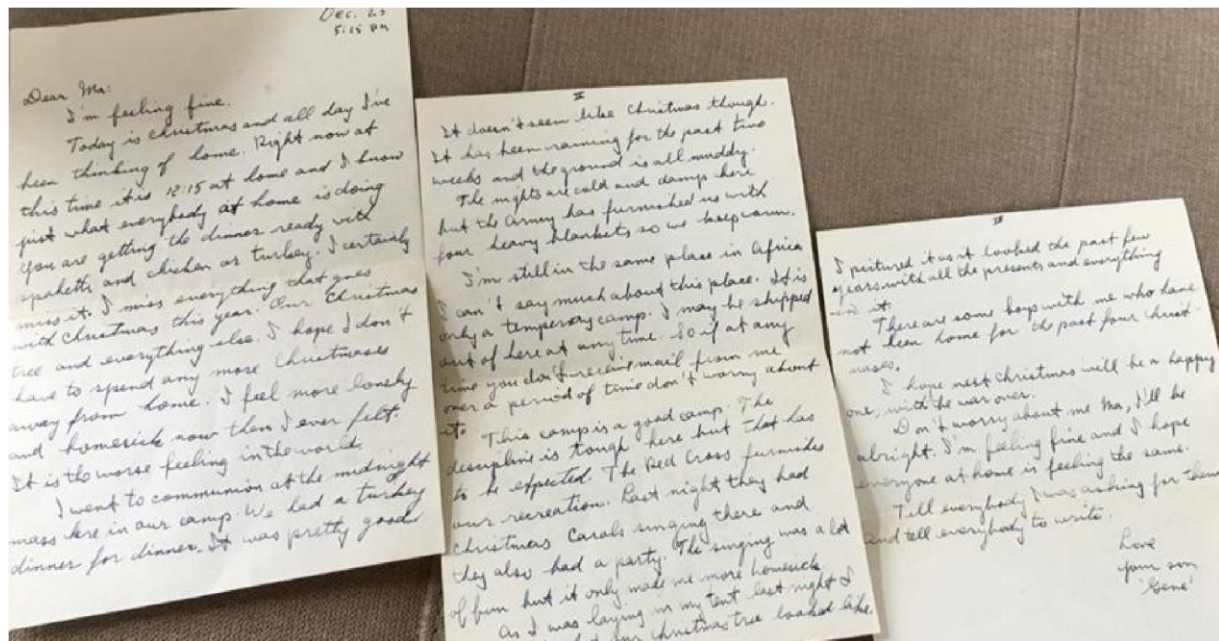 Dec. 25
5:15 PM
Dear Ma:
I'm feeling fine.
Today is christmas and all day I've
been thinking of home. Right now at
this time it is 12:15 at home and I know
just what everybody at home is doing
you are getting the dinner ready with
spahetti and chicken or turkey. I certainly
miss it. I miss everything that goes
with Christmas this year. Our Christmas
tree and everything else. I hope I don't
have to spend any more Christmases
away from home. I feel more lonely
and homesick now then I ever felt.
It is the worse feeling in the world.
I went to communion at the midnight
mass here in our camp. We had a turkey
dinner for dinner. It was pretty good
II
It doesn't seem like Christmas though.
It has been raining for the past two
weeks and the ground is all muddy.
The nights are cold and damp here
but the Army has furnished us with
four heavy blankets so we keep warm.
I'm still in the same place in Africa
I can't say much about this place. It is
only a temporary camp. I may be shipped
out of here at any time. So if at any
time you don't receive mail from me
over a period of time don't worry about
it.
This camp is a good camp. The
descipline is tough here but that has
to be expected. The Red Cross furnishes
our recreation. Last night they had
Christmas Carols singing there and
they also had a party. The singing was a lot
of fun but it only made me more homesick
As I was laying in my tent last night I
our christmas tree looked like.
III
I pictured it as it looked the past few
years with all the presents and everything
on it.
There are some boys with me who have
not been home for the past four christ-
mases.
I hope next Christmas will be a happy
one, with the war over.
Don't worry about me Ma, I'll be
alright. I'm feeling fine and I hope
everyone at home is feeling the same.
Tell everybody I was asking for them
and tell everybody to write.
Love
your son
'Gene'